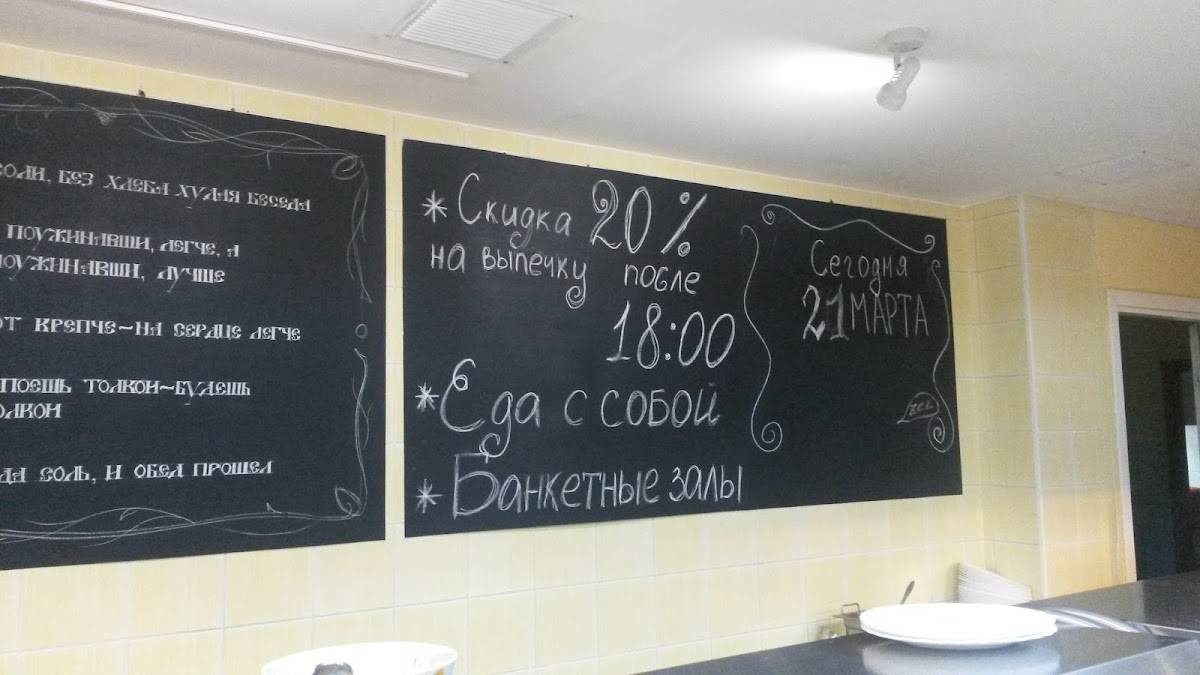 СОЛИ, БЕЗ ХЛЕБА ХУДАЯ БЕСЕДА
ПОУЖИНАВШИ, ЛЕГЧЕ, А
ПОУЖИНАВШИ, ЛУЧШЕ
ОТ КРЕПЧЕ~НА СЕРДЦЕ ЛЕГЧЕ
ПОЕШЬ ТОЛКОМ~БУДЕШЬ
ОЛКОМ
ДА СОЛЬ, И ОБЕД ПРОШЕЛ
* Скидка 20%
на выпечку после
18:00
* Еда с собой
* Банкетные залы
Сегодня
21 МАРТА